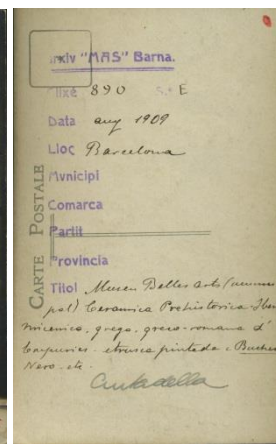 Arxiv "MAS" Barna.
Clixé 890 E
Data aug 1909
Lloc Barcelona
Mvnicipi
Comarca
Partit
Provincia
Titol Museu Belles arts (municipal) Ceramica Prehistorica-Iber
micenica, grega, greco-romana d'
Empuries - etrusca pintada i Buchero
Nero, etc.
Ciutadella
CARTE POSTALE